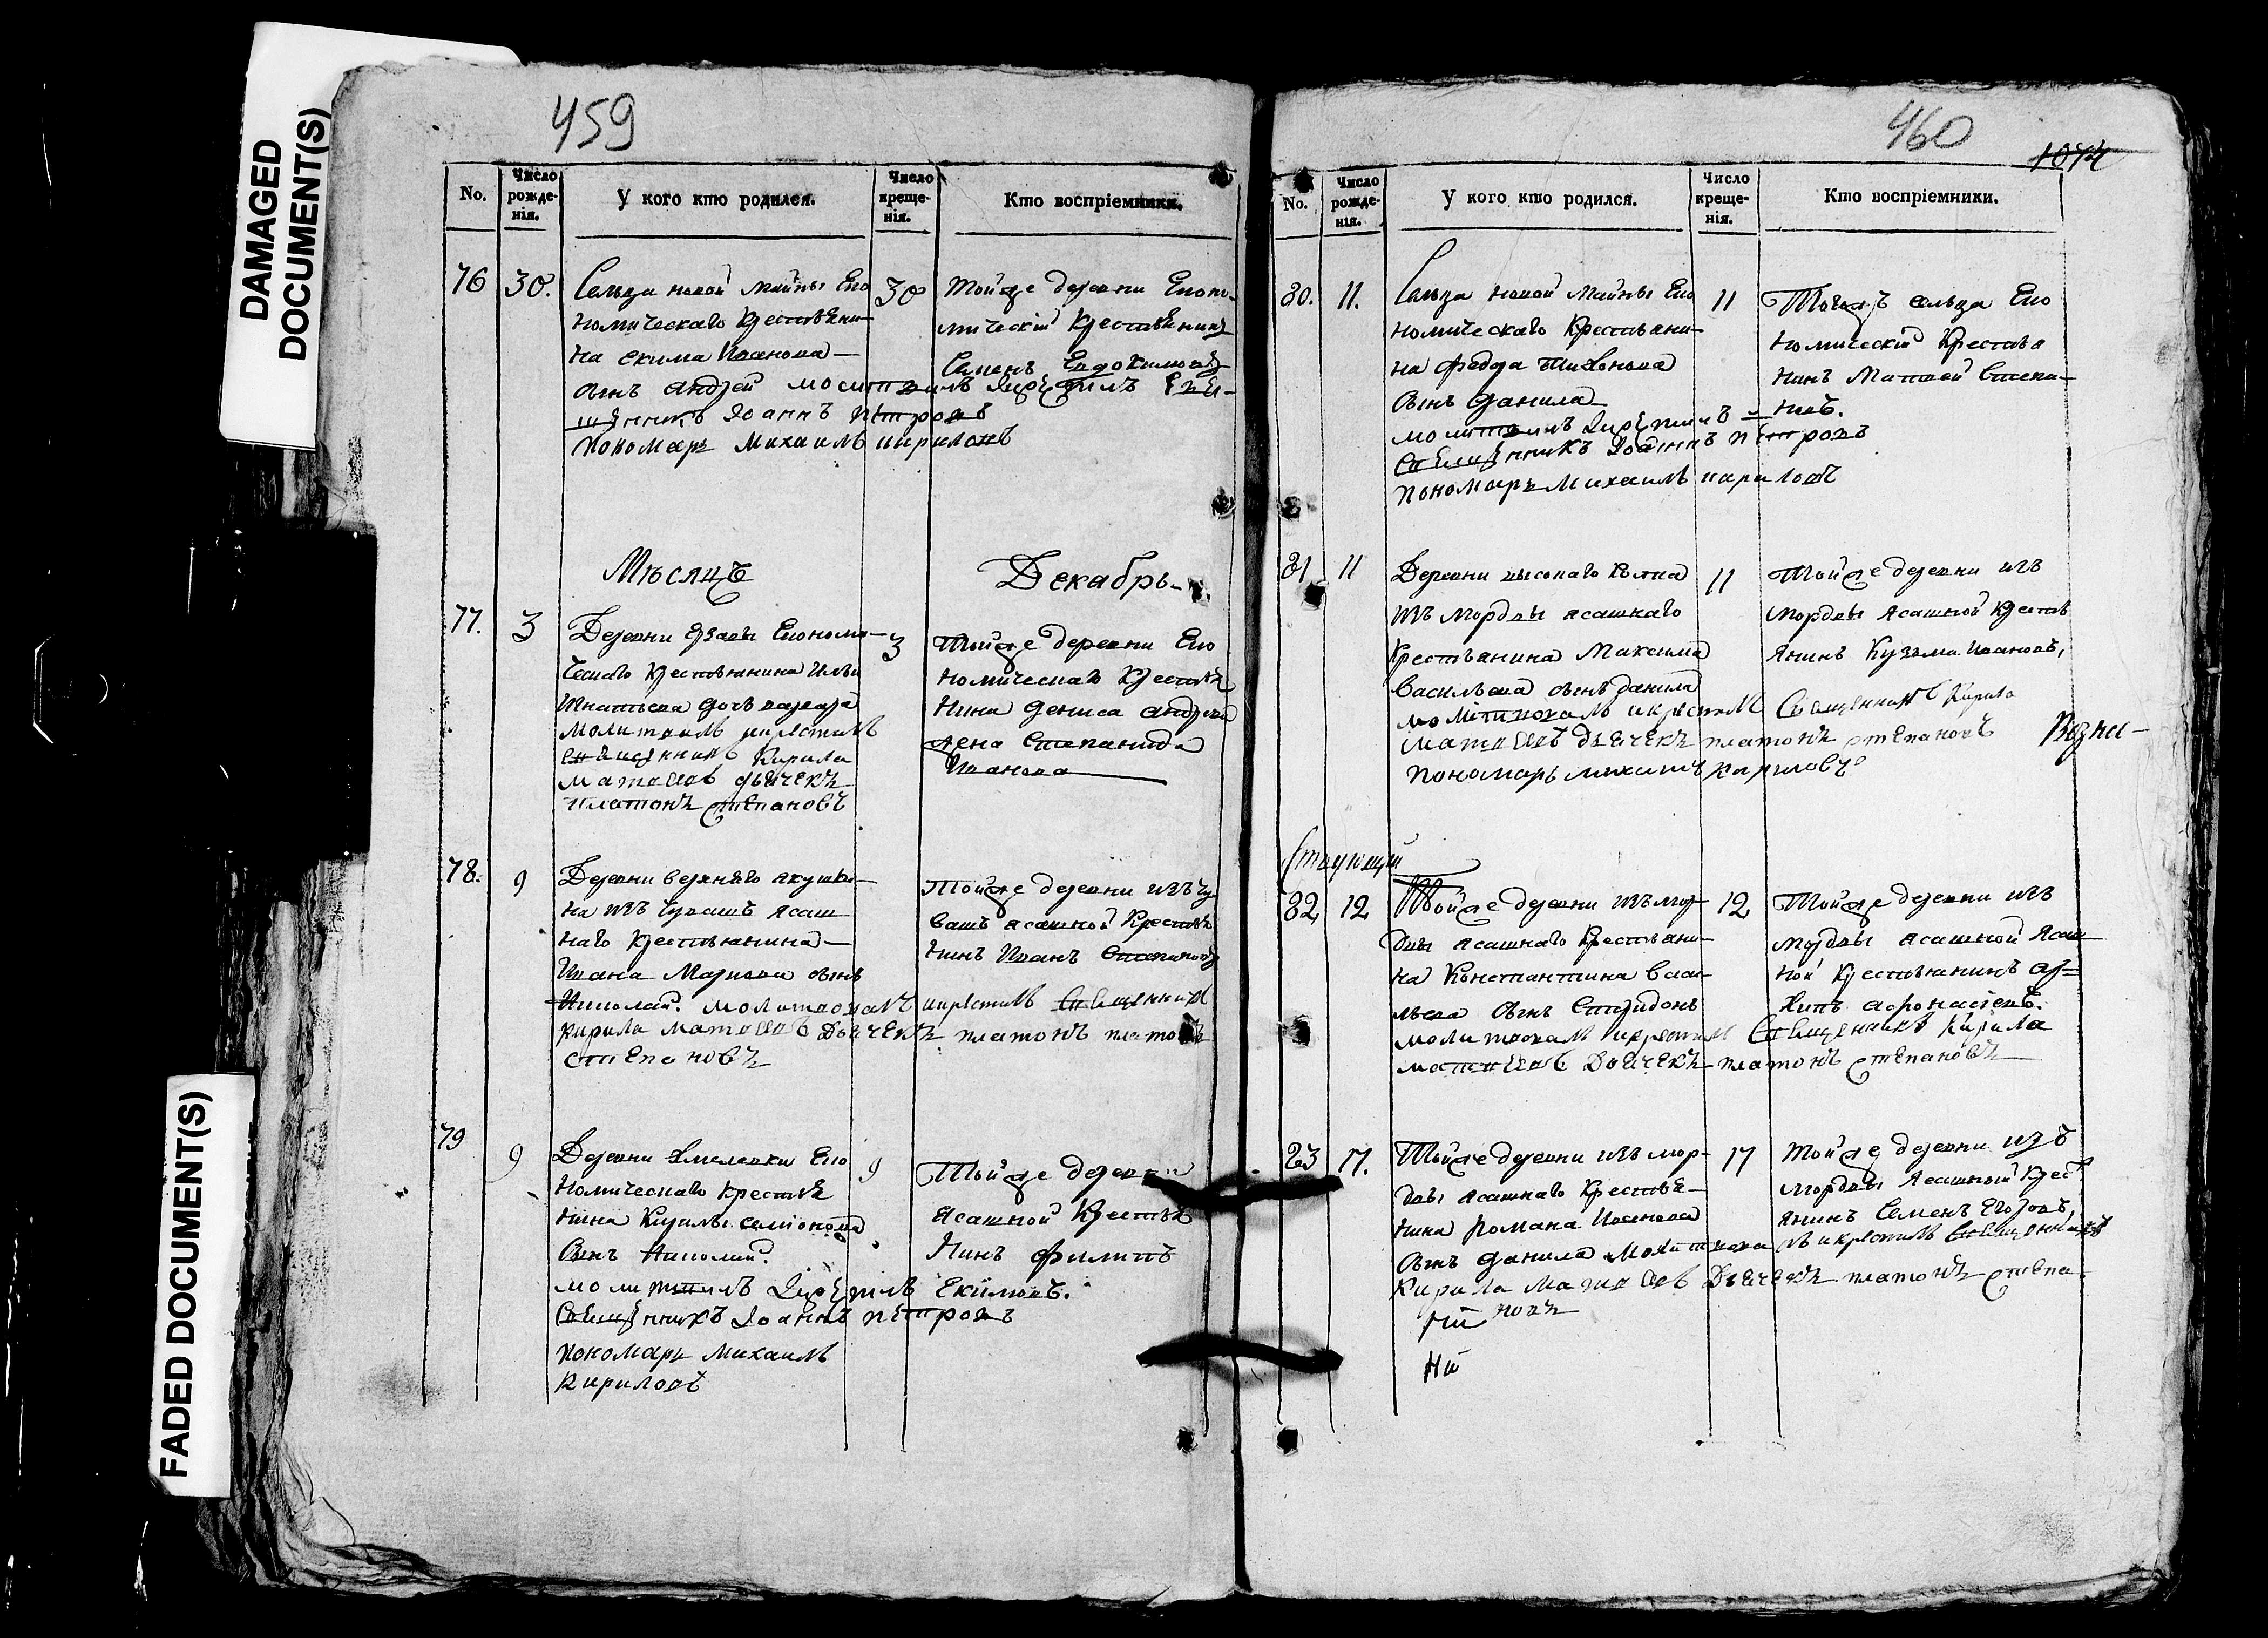 DAMAGED
DOCUMENT(S)
FADED DOCUMENT(S)
459
No.
Число рожде-нія.
У кого кто родился.
Число креще-нія.
Кто воспріемники.
76
30.
Сельца новой Майны Еко
номическаго крестьяни-
на екима Иванова
сынъ андрей молитвилъ икрѣстилъ свѣ-
щенникъ Иоаннъ петровъ
пономарь михаилъ кириловъ
30
Тойже деревни Еконо-
мическій крестьянинъ
Семенъ Евдокимовъ
Мѣсяцъ
Декабрь
77.
3
Деревни Ерзавы Економи-
ческаго крестьянина Ильи
Игнатьева дочь варвара
молитвилъ икрестилъ
священникъ Кирила
матвеевъ дьячекъ
платонъ степановъ
3
Тойже деревни Еко
номическаго крестья
нина дениса андреева
жена Степанида
Иванова
78.
9
Деревни верхняго якушки-
на изъ чувашъ ясаш
наго крестьянина
Ивана Маркова сынъ
Николай. молитвовалъ икрестилъ священникъ
кирила матвеевъ дьячекъ платонъ плато
степановъ
Тойже деревни изъ чу
вашъ ясашной крестья
нинъ Иванъ Степановъ
79
9
Деревни хмелевки Еко
номическаго крестья
нина Кирилы семіонова
сынъ Николай.
молитвилъ икрѣстилъ
священникъ Иоаннъ петровъ
пономарь михаилъ
кириловъ
9
Тойже деревни
ясашной крестья
нинъ филипъ
Екимовъ.
460
1074
No.
Число рожде-нія.
У кого кто родился.
Число креще-нія.
Кто воспріемники.
80.
11.
Сельца новой Майны Еко
номическаго крестьяни-
на федора тихонова
сынъ данила
молитвилъ икрѣстилъ
священникъ Иоаннъ петровъ
пономарь михаилъ кириловъ
11
Тогожъ сельца Еко
номическій крестья
нинъ Матвей Степа-
новъ.
81
11
Деревни высокаго колка
изъ мордвы ясашнаго
крестьянина Максима
Васильева сынъ данила
молитвовалъ икрестилъ священникъ Кирила
матвеевъ дьячекъ платонъ степановъ
пономарь михаилъ кириловъ
11
Тойже деревни изъ
мордвы ясашной крестья
янинъ Кузьма Ивановъ,
82
12
Тойже деревни изъ мор-
двы ясашнаго крестьяни-
на Константина Васи-
льева сынъ Спиридонъ
молитвовалъ икрестилъ священникъ Кирила
матвеевъ дьячекъ платонъ степановъ
12
Тойже деревни изъ
мордвы ясашной Ясаш
ной крестьянинъ ар=
хипъ афонасіевъ.
83
17.
Тойже деревни изъ мор-
двы ясашнаго крестья-
нина романа Иванова
сынъ данила молитвовалъ икрестилъ священникъ
Кирила матвеевъ дьячекъ платонъ степа
новъ
17
Тойже деревни изъ
мордвы Ясашный крест
янинъ Семенъ Егоровъ,